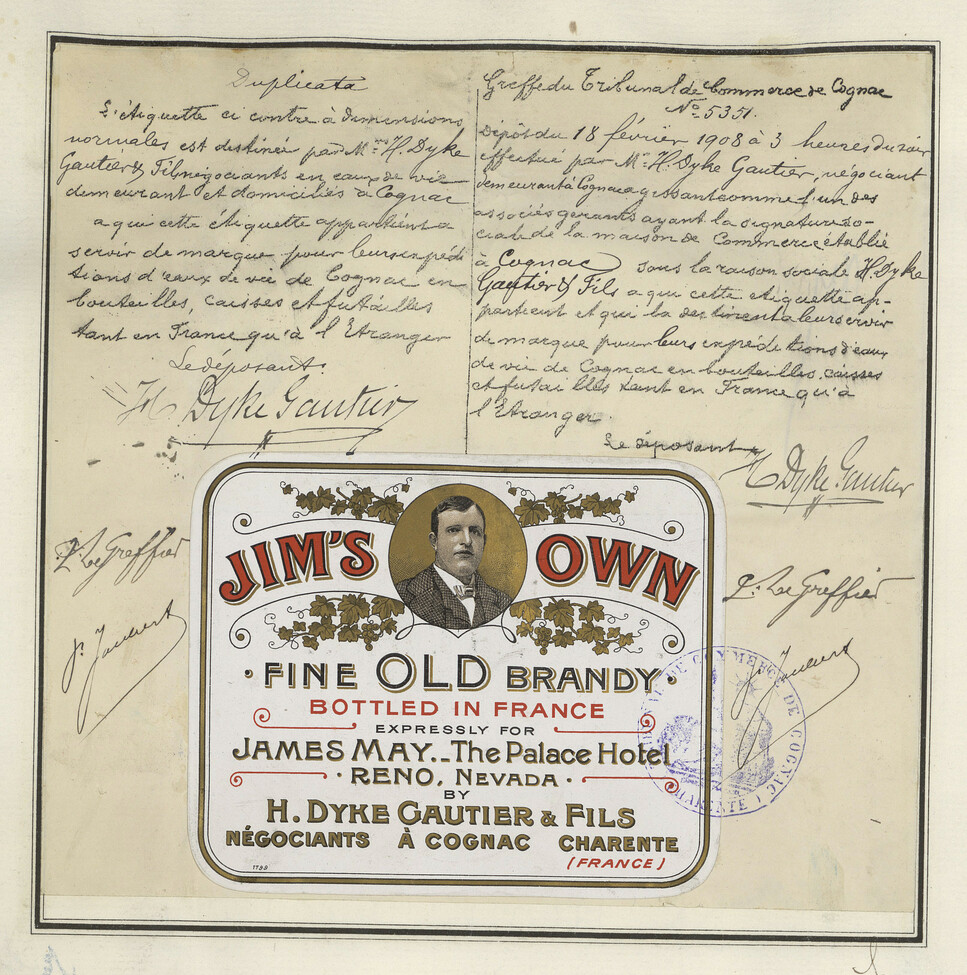 Duplicata
L'étiquette ci contre à dimensions
normales est destinée par Mrs H. Dyke
Gautier & Fils négociants en eaux de vie
demeurant et domiciliés à Cognac
a qui cette étiquette appartient a
servir de marque pour leurs expédi
tions d'eaux de vie de Cognac en
bouteilles, caisses et futailles
tant en France qu'à l'Etranger
Le déposant:
H Dyke Gautier
P. Le Greffier
Greffe du Tribunal de Commerce de Cognac
No 5351.
Dépôt du 18 février 1908 à 3 heures du soir
effectué par Mr H. Dyke Gautier, négociant
demeurant à Cognac agissant comme l'un des
associés gérants ayant la signature so-
ciale de la maison de Commerce établie
à Cognac sous la raison sociale H. Dyke
Gautier & Fils a qui cette étiquette ap-
partient et qui la destinent a leur servir
de marque pour leurs expéditions d'eaux
de vie de Cognac en bouteilles, caisses
et futailles tant en France qu'à
l'Etranger.
Le déposant
H Dyke Gautier
P. Le Greffier
JIM'S OWN
FINE OLD BRANDY
BOTTLED IN FRANCE
EXPRESSLY FOR
JAMES MAY._The Palace Hotel
RENO, NEVADA
BY
H. DYKE GAUTIER & FILS
NÉGOCIANTS À COGNAC CHARENTE
(FRANCE)
1788
COMMERCE DE COGNAC